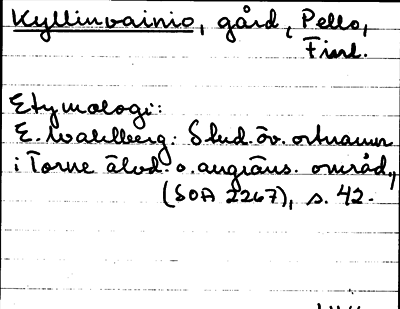 Kyllinvainio, gård, Pello,
Finl.
Etymologi:
E. Wahlberg: Stud. öv. ortnamn
i Torne älvd. o. angräns. områd.,
(SOA 2267), s. 42.